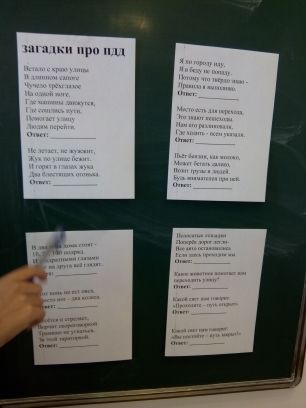 загадки про пдд
Встало с краю улицы
В длинном сапоге
Чучело трёхглазое
На одной ноге.
Где машины движутся,
Где сошлись пути,
Помогает улицу
Людям перейти.
Ответ:
Не летает, не жужжит,
Жук по улице бежит.
И горят в глазах жука
Два блестящих огонька.
Ответ:
Я по городу иду,
Я в беду не попаду.
Потому что твёрдо знаю -
Правила я выполняю.
Ответ:
Место есть для перехода,
Это знают пешеходы.
Нам его разлиновали,
Где ходить - всем указали.
Ответ:
Пьёт бензин, как молоко,
Может бегать далеко,
Возит грузы и людей.
Будь внимателен при ней.
Ответ:
В два дома стоят -
подряд.
квадратными глазами
на друга всё глядят.
конь не ест овса,
ног - два колеса.
и стреляет,
Ворчит скороговоркой
Трамваю не угнаться
За этой тараторкой.
Полосатые лошадки
Поперёк дорог легли-
Все авто остановились
Если здесь проходим мы
Ответ:
Какое животное помогает нам
переходить улицу?
Ответ:
Какой свет нам говорит:
«Проходите – путь открыт»
Ответ:
Какой свет нам говорит:
«Вы постойте – путь закрыт!»
Ответ: